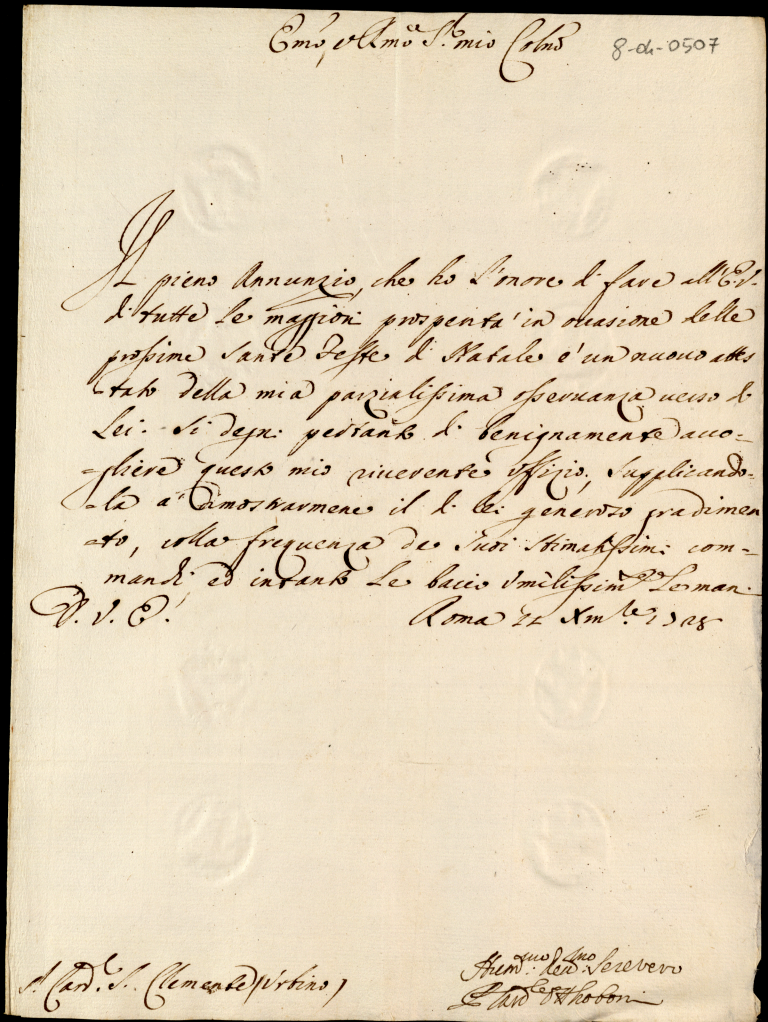 Emō, e Rmō Sr. mio Colmō
8-04-0507
Il pieno Annunzio, che ho l'onore di fare all'E.V.
di tutte le maggiori prosperità in occasione delle
prossime Sante Feste di Natale è un nuovo attes
-tato della mia parzialissima osservanza verso di
Lei. Si degni pertanto di benignamente acco-
-gliere questo mio riverente offizio, supplicando-
-la a dimostrarmene il di lei generoso gradimen
-to, colla frequenza de suoi stimatissimi com-
mandi, ed intanto le bacio umilissimte le mani
D. V. E.
Roma 22 Xmbre 1728
Sr. Card.le S. Clemente (Urbino)
Humsso Devmo Servero
P. Card.le Otthoboni